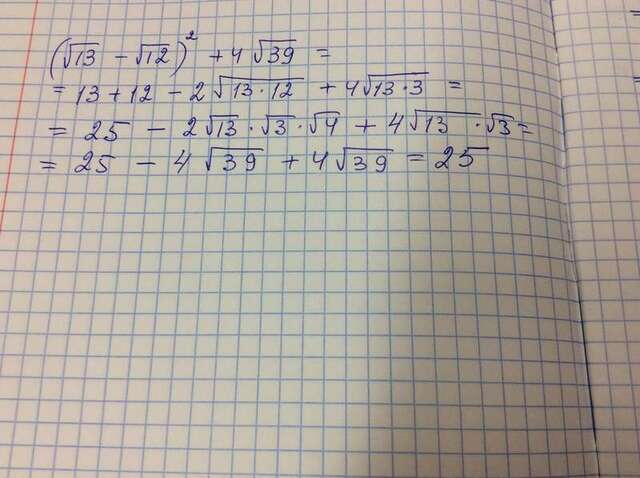 (√13 − √12)² + 4√39 =
= 13 + 12 − 2√13·12 + 4√13·3 =
= 25 − 2√13 · √3 · √4 + 4√13 · √3 =
= 25 − 4√39 + 4√39 = 25